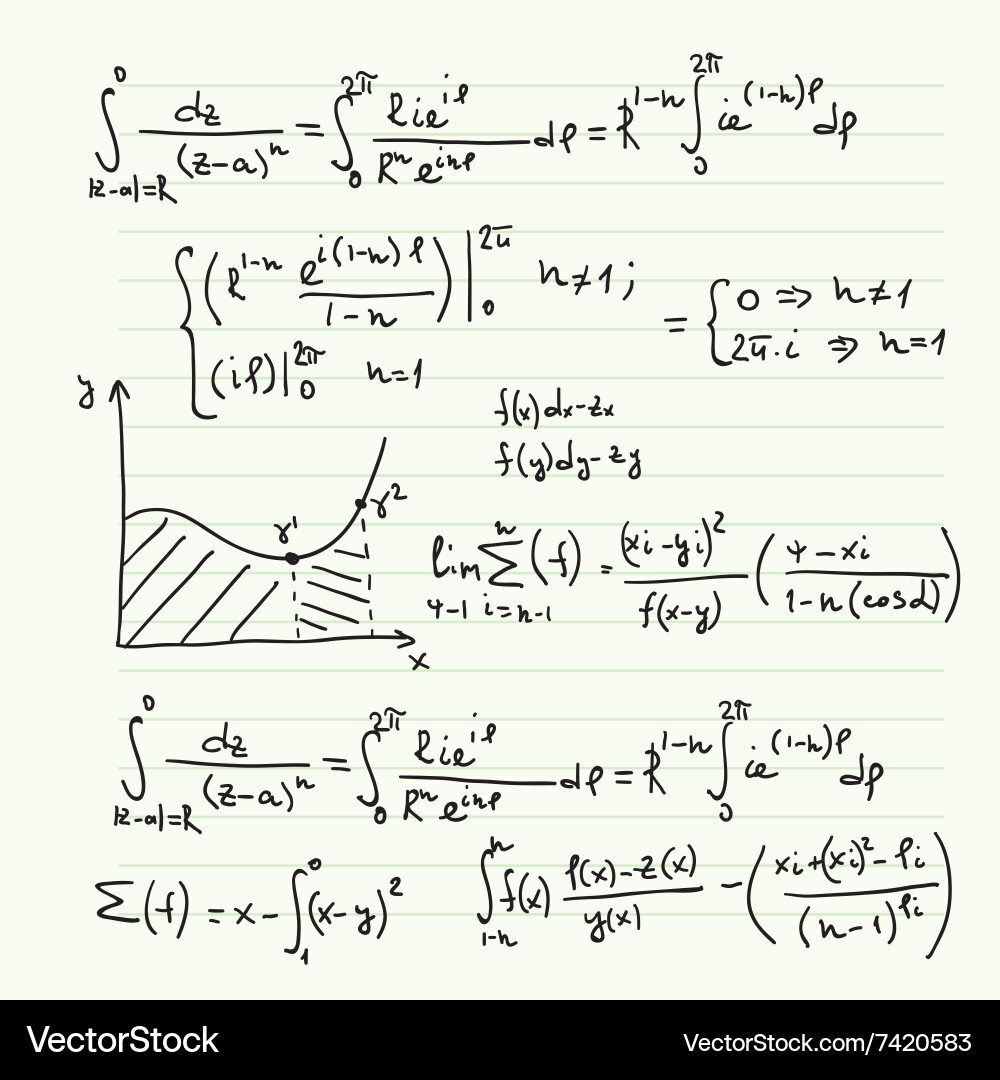 ∫ 0 |z-a|=R dz/(z-a)ⁿ = ∫ 0 2π Rie^(iρ)/(Rⁿe^(inρ)) dρ = R^(1-n) ∫ 0 2π ie^((1-n)ρ) dρ
{ (R^(1-n) e^(i(1-n)ρ)/(1-n)) | 0 2π n≠1;
(iρ)| 0 2π n=1
= { 0 => n≠1
2π·i => n=1
y
f(x)dx-zx
f(y)dy-zy
γ¹ γ²
lim Σ (f) = (xi-yi)²/f(x-y) (4-xi/1-n(cosα))
n 4-1 i=n-1
x
∫ 0 |z-a|=R dz/(z-a)ⁿ = ∫ 0 2π Rie^(iρ)/(Rⁿe^(inρ)) dρ = R^(1-n) ∫ 0 2π ie^((1-n)ρ) dρ
Σ(f) = x - ∫ 1 0 (x-y)²
∫ 1-n n f(x) ρ(x)-z(x)/y(x) - (xi+(xi)²-ρi/(n-1)^(ρi))
VectorStock
VectorStock.com/7420583